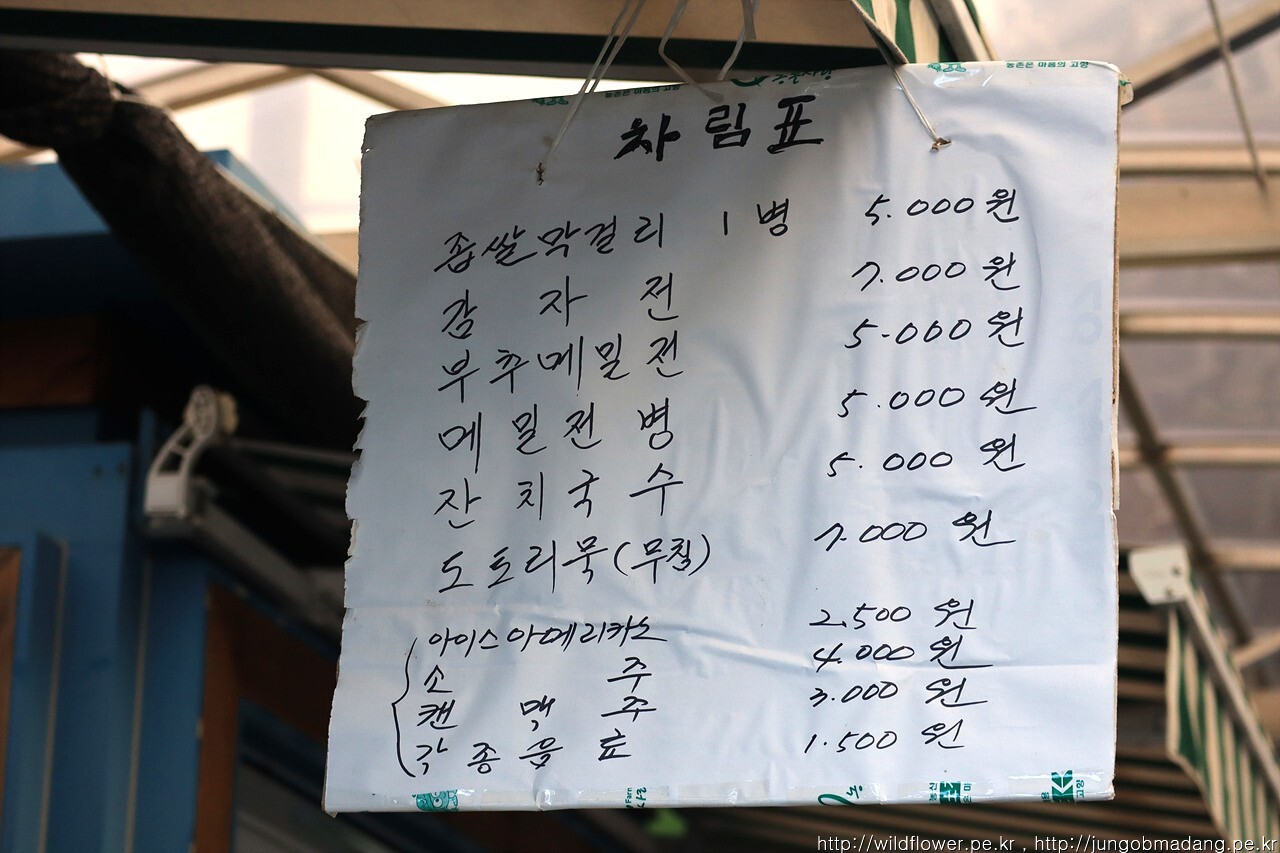 농촌은 마음의 고향
농촌사랑
농촌은 마음의 고향
차림표
좁쌀막걸리 1병 5.000원
감자전 7.000원
부추메밀전 5.000원
메밀전병 5.000원
잔치국수 5.000원
도토리묵(무침) 7.000원
아이스아메리카노 2.500원
소주 4.000원
캔맥주 3.000원
각종음료 1.500원
http://wildflower.pe.kr , http://jungobmadang.pe.kr